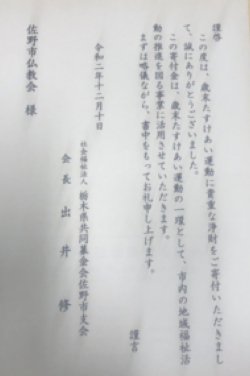 謹啓
この度は、歳末たすけあい運動に貴重な浄財をご寄付いただきまし
て、誠にありがとうございました。
この寄付金は、歳末たすけあい運動の一環として、市内の地域福祉活
動の推進を図る事業に活用させていただきます。
まずは略儀ながら、書中をもってお礼申し上げます。
謹言
令和二年十二月十日
社会福祉法人 栃木県共同募金会佐野市支会
会長 出井 修
佐野市仏教会 様